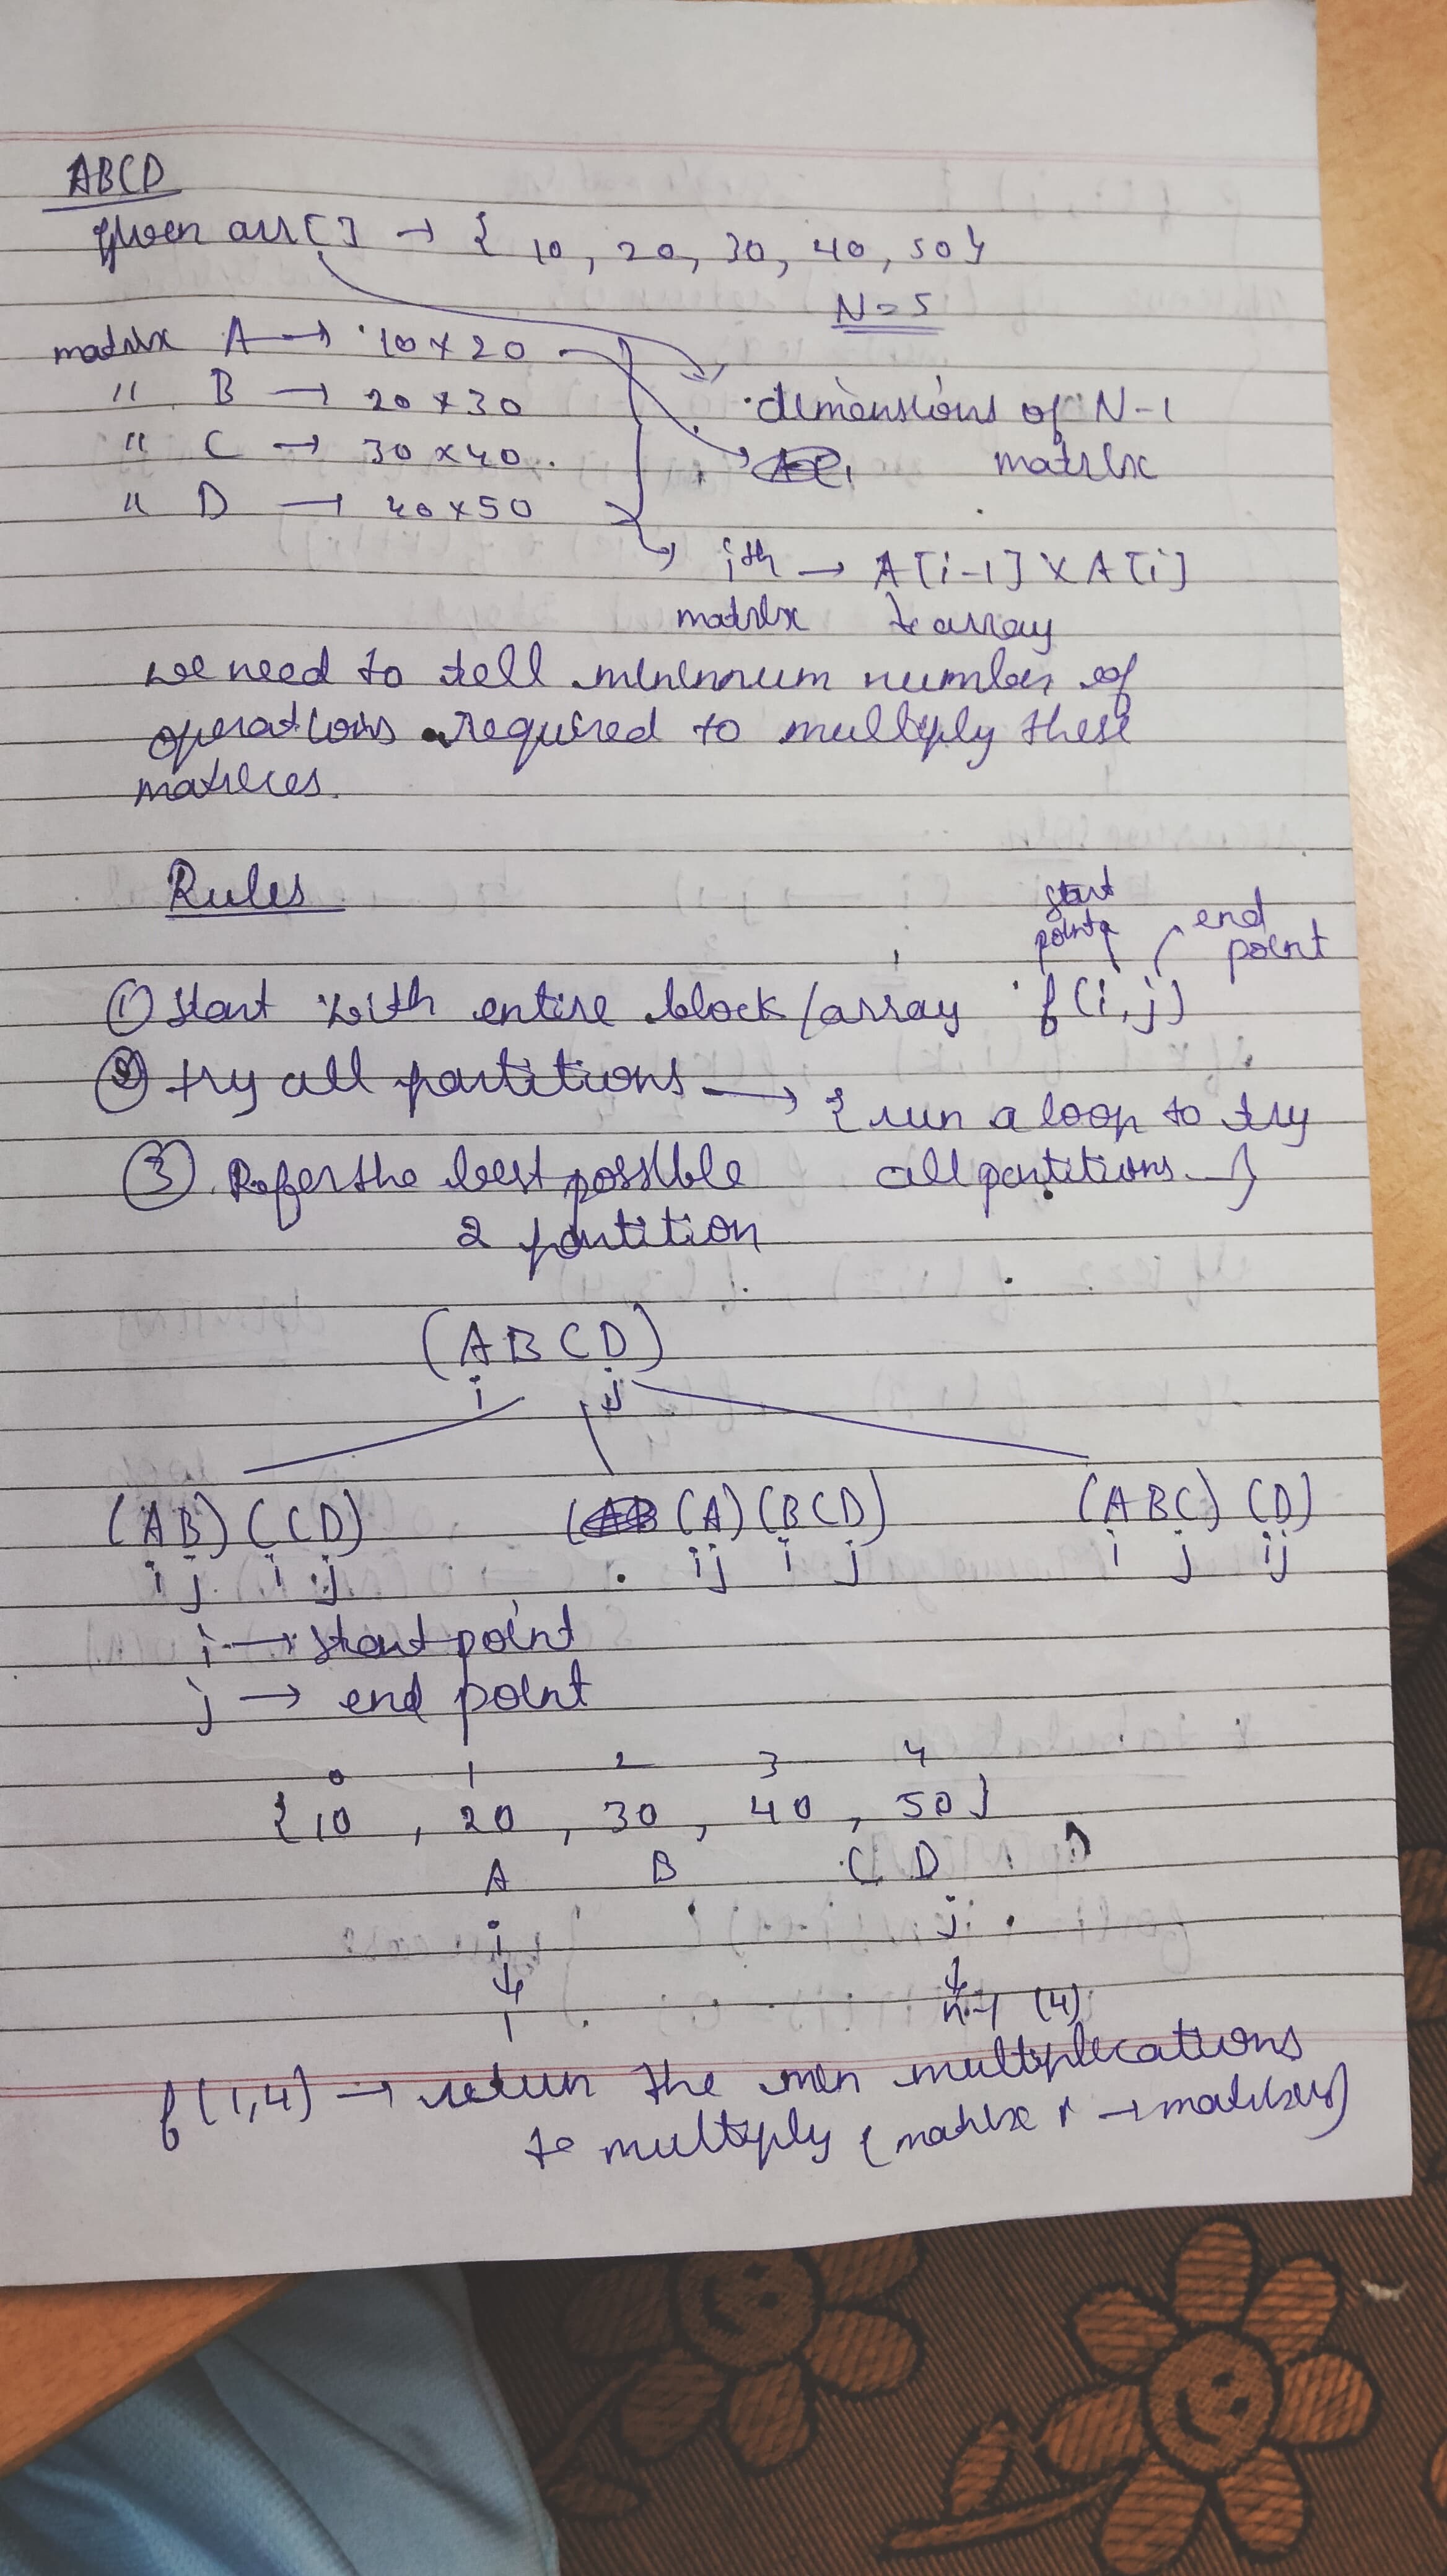 ABCD
Given arr[] → { 10, 20, 30, 40, 50}
N = 5
matrix A → 10 x 20
" B → 20 x 30
" C → 30 x 40
" D → 40 x 50
dimensions of N-1
matrix
ith → A[i-1] X A[i]
matrix ↳ array
we need to tell minimum number of
operations required to multiply these
matrices.
Rules
start
point
end
point
① Start with entire block/array f(i,j)
② try all partitions → { run a loop to try
all partitions }
③ the best possible
2 partition
(ABCD)
i j
(AB) (CD) (A) (BCD) (ABC) (D)
i j i j ij i j i j ij
i → start point
j → end point
0 1 2 3 4
{10, 20, 30, 40, 50}
A B C D
i j
↓ ↓
1 n-1 (4)
f(1,4) → return the min multiplications
to multiply (matrix 1 →